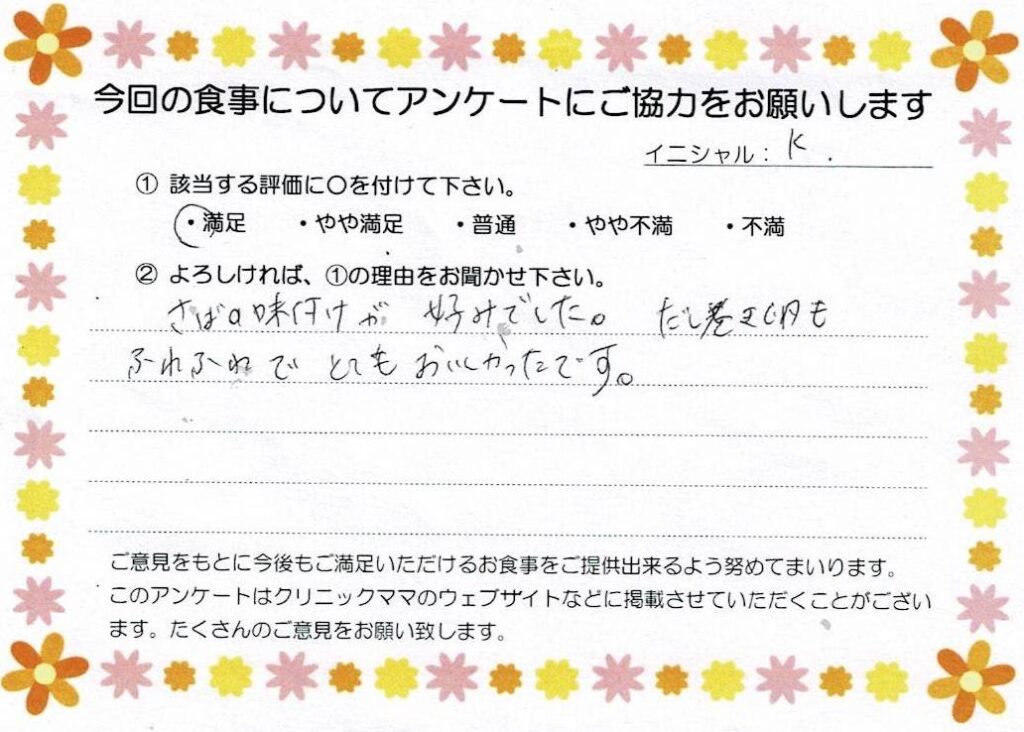 今回の食事についてアンケートにご協力をお願いします
イニシャル： K .
① 該当する評価に〇を付けて下さい。
・満足 ・やや満足 ・普通 ・やや不満 ・不満
② よろしければ、①の理由をお聞かせ下さい。
さばの味付けが 好みでした。 だし巻き卵も
ふわふわで とても おいしかったです。
ご意見をもとに今後もご満足いただけるお食事をご提供出来るよう努めてまいります。
このアンケートはクリニックママのウェブサイトなどに掲載させていただくことがござい
ます。たくさんのご意見をお願い致します。